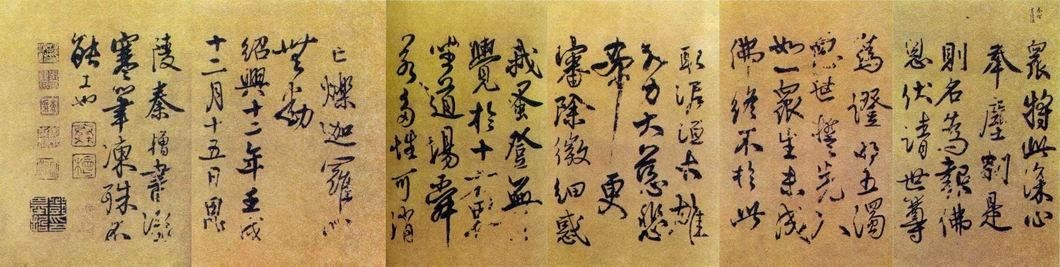 眾將此深心
奉塵剎是
則名為報佛
恩伏請世尊
為證明五濁
惡世誓先入
如一眾生未成
佛終不於此
取泥洹大雄
大力大慈悲
希更
審除微細惑
我蚤登無上
覺於十方界
坐道場舜
若多性可消
亡爍迦羅心
無動
紹興十二年壬戌
十二月十五日
陵 僧書
寒筆凍殊不
能工也